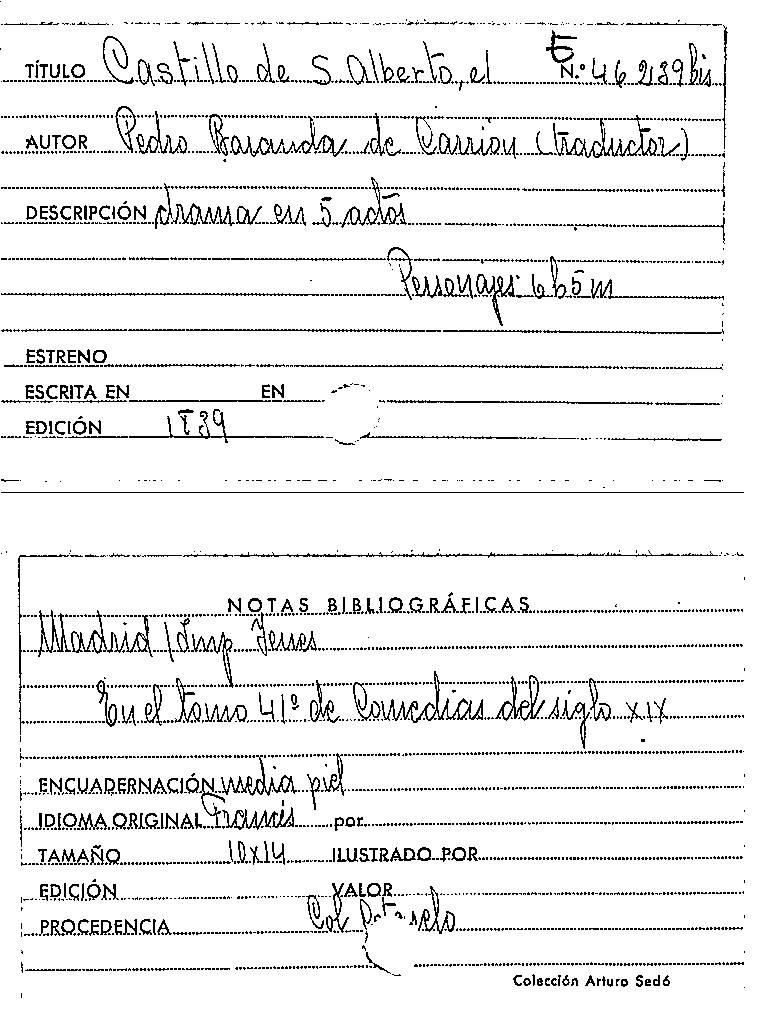 TÍTULO Castillo de S. Alberto, el N.º 46239 bis
AUTOR Pedro Baranda de Carrión (traductor)
DESCRIPCIÓN drama en 5 actos
Personajes: 6 h 5 m
ESTRENO
ESCRITA EN EN
EDICIÓN 1839
NOTAS BIBLIOGRÁFICAS
Madrid / Imp Yenes
En el tomo 41º de Comedias del siglo XIX
ENCUADERNACIÓN media piel
IDIOMA ORIGINAL Francés por
TAMAÑO 10x14 ILUSTRADO POR
EDICIÓN VALOR
PROCEDENCIA Col
Colección Arturo Sedó